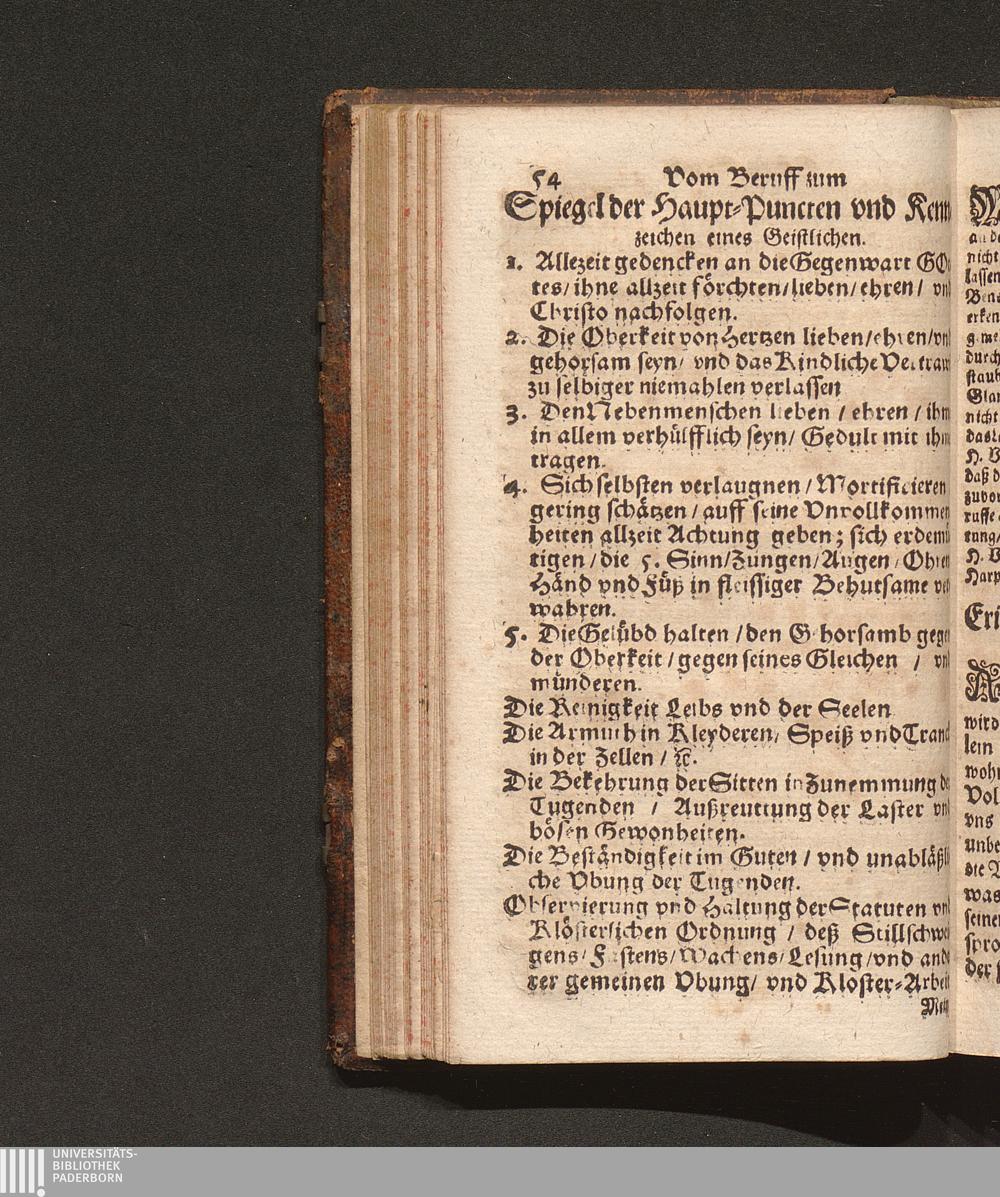 54 Vom Beruff zum
Spiegel der Haupt-Puncten vnd Kenn
zeichen eines Geistlichen.
1. Allezeit gedencken an die Gegenwart GOt
tes/ ihne allzeit förchten/ lieben/ ehren/ vnd
Christo nachfolgen.
2. Die Oberkeit von Hertzen lieben/ ehren/ vnd
gehorsam seyn/ vnd das Kindliche Vertraw
zu selbiger niemahlen verlassen
3. Den Nebenmenschen lieben / ehren / ihm
in allem verhülfflich seyn/ Gedult mit ihm
tragen.
4. Sich selbsten verlaugnen / Mortificieren
gering schätzen / auff seine Vnvollkommen
heiten allzeit Achtung geben; sich erdemü
tigen / die 5. Sinn/ Zungen/ Augen/ Ohren
Händ vnd Füß in fleissiger Behutsame ver
wahren.
5. Die Gelübd halten / den Gehorsamb gegen
der Oberkeit / gegen seines Gleichen / vnd
münderen.
Die Reinigkeit Leibs vnd der Seelen
Die Armuth in Kleyderen, Speiß vnd Tranck
in der Zellen / ꝛc.
Die Bekehrung der Sitten in Zunemmung der
Tugenden / Außreuttung der Laster vnd
bösen Gewonheiten.
Die Beständigkeit im Guten / vnd unabläßli
che Vbung der Tugenden.
Observierung vnd Haltung der Statuten vnd
Klösterlichen Ordnung / deß Stillschwei
gens/ Fastens/ Wachens/ Lesung/ vnd ande
rer gemeinen Vbung/ vnd Kloster-Arbeit
nicht
lassen
durch
staub
nicht
daß d
zuvor
ruffe
wird
lein
wohn
Vol
vns
unbe
was
seinen
spro
UNIVERSITÄTS-
BIBLIOTHEK
PADERBORN